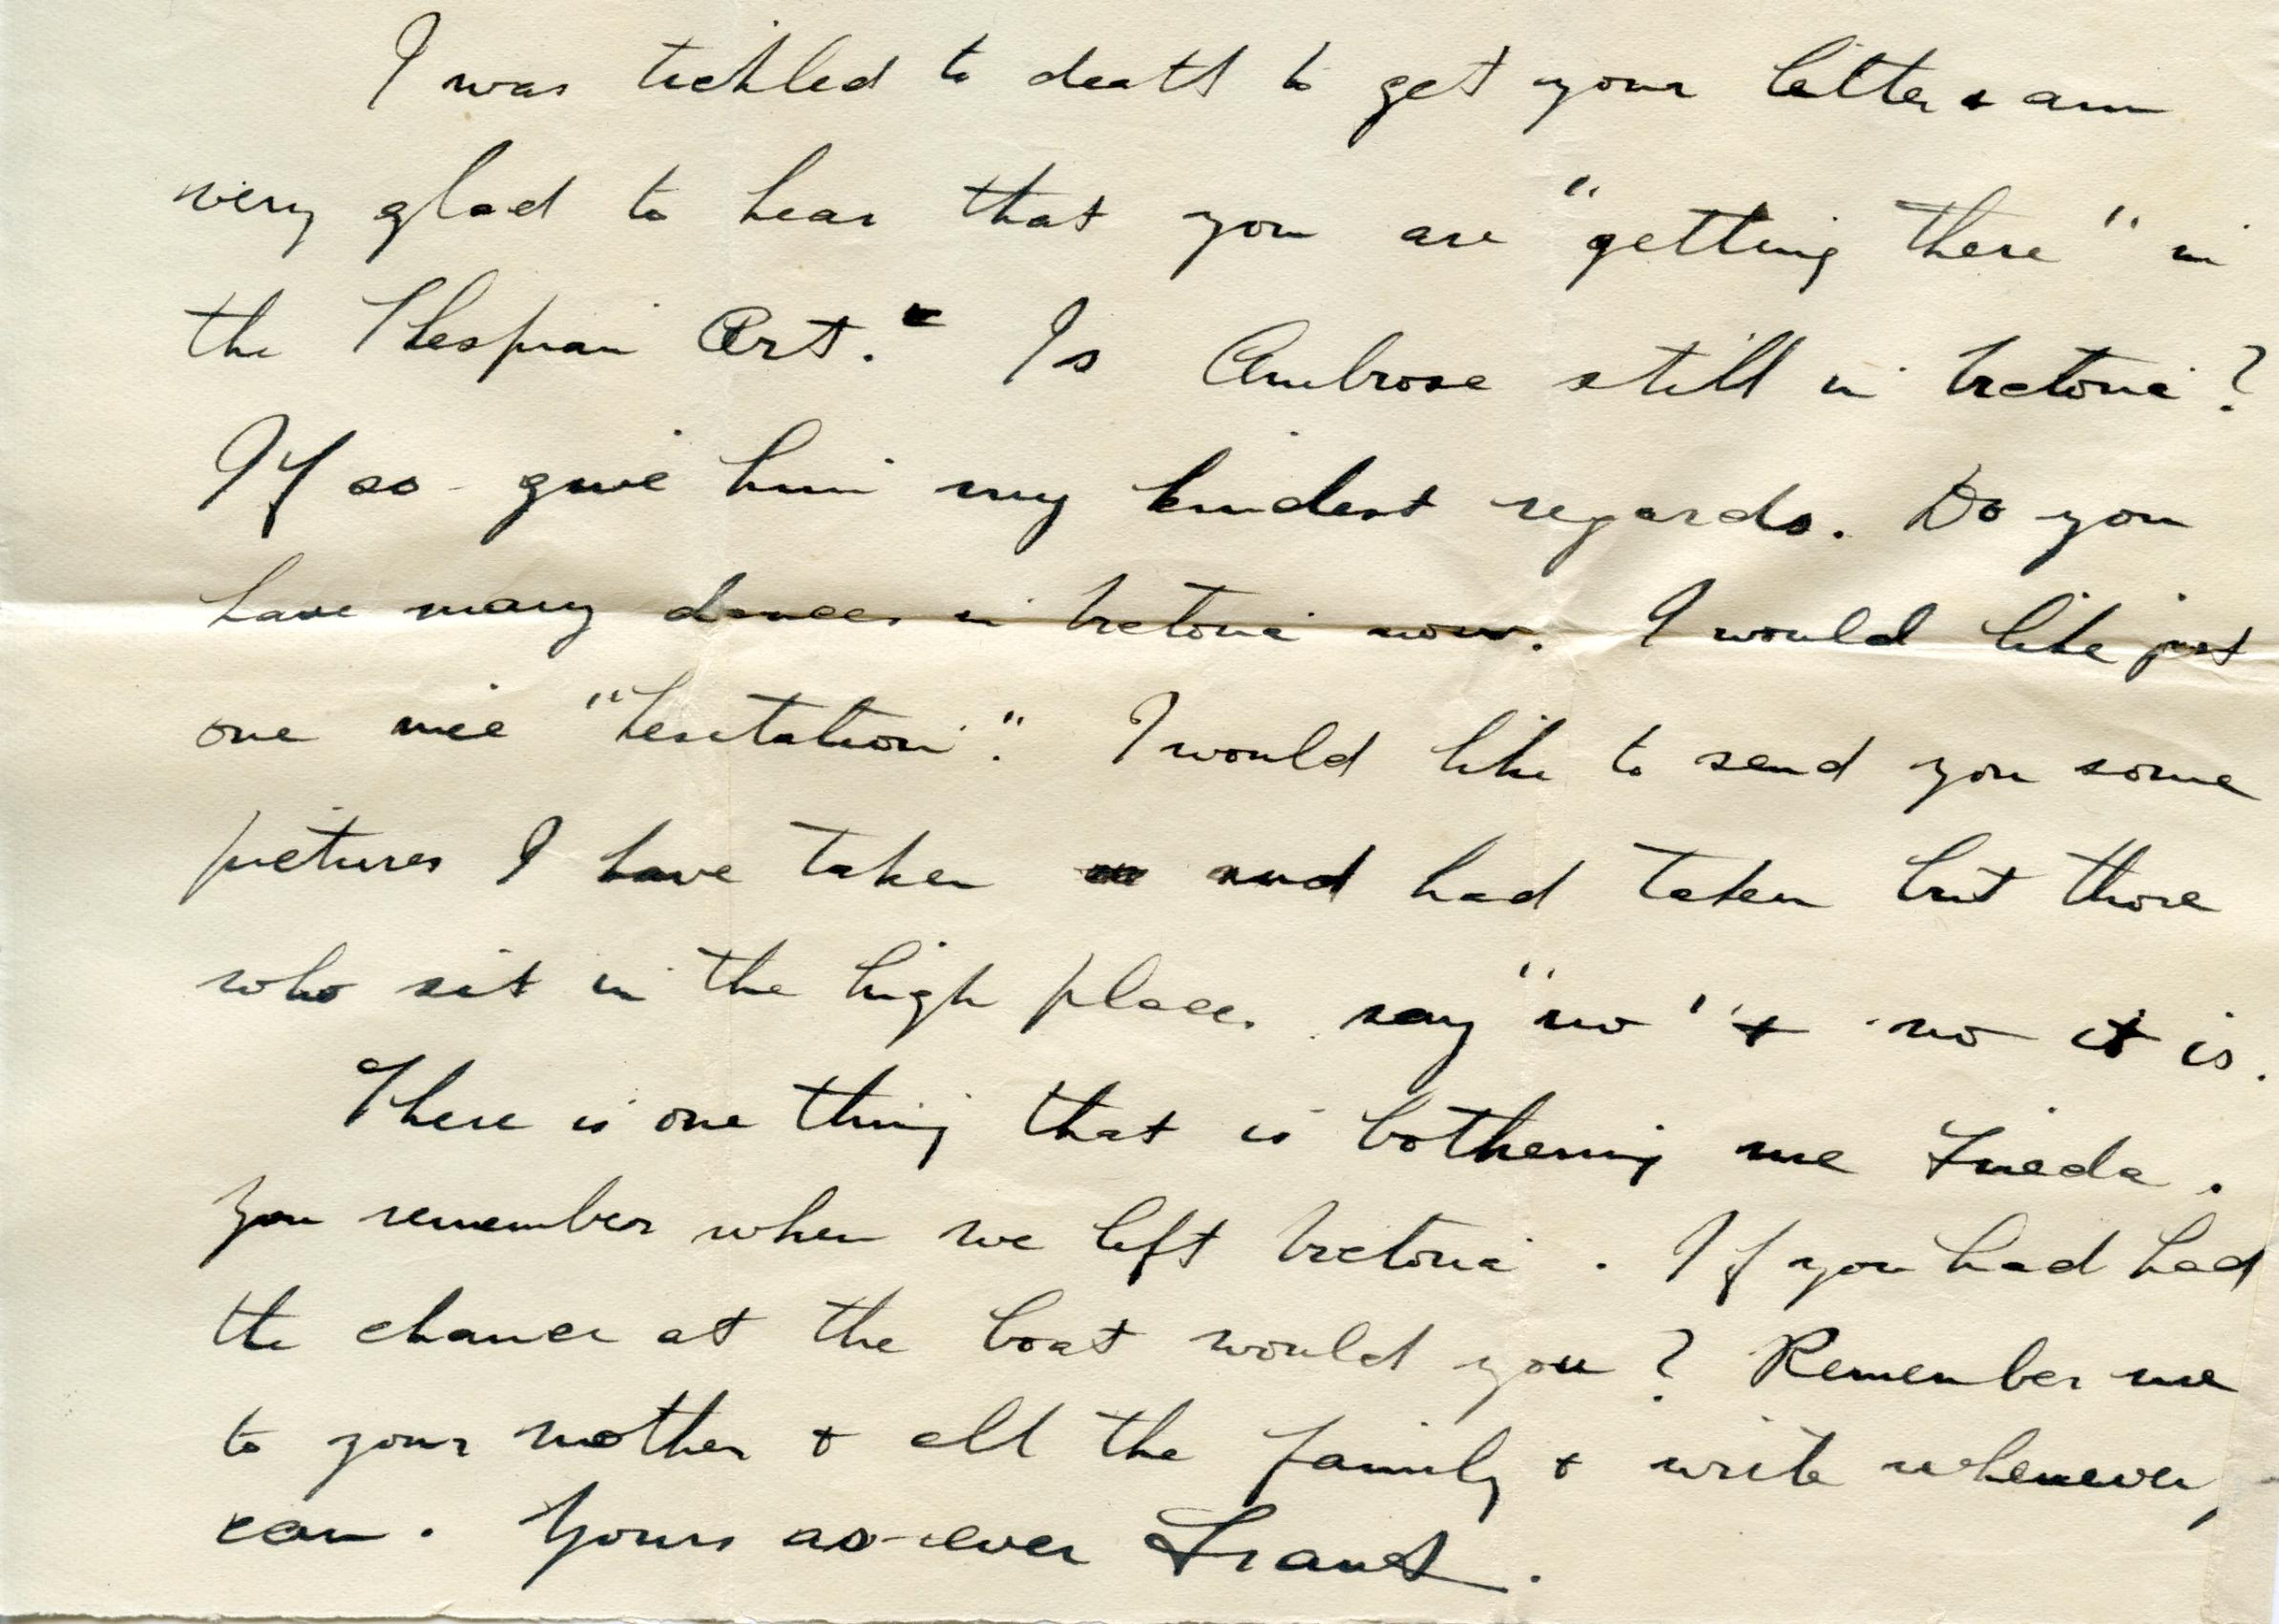 I was tickled to death to get your letter & am
very glad to hear that you are "getting there" in
the Thespian Art. Is Ambrose still in Victoria?
If so give him my kindest regards. Do you
have many dances in Victoria now. I would like just
one nice "hesitation". I would like to send you some
pictures I have taken and had taken but those
who sit in the high places say "no" & no it is.
There is one thing that is bothering me Frieda.
You remember when we left Victoria. If you had had
the chance at the boat would you? Remember me
to your mother & all the family & write whenever
can. Yours as ever